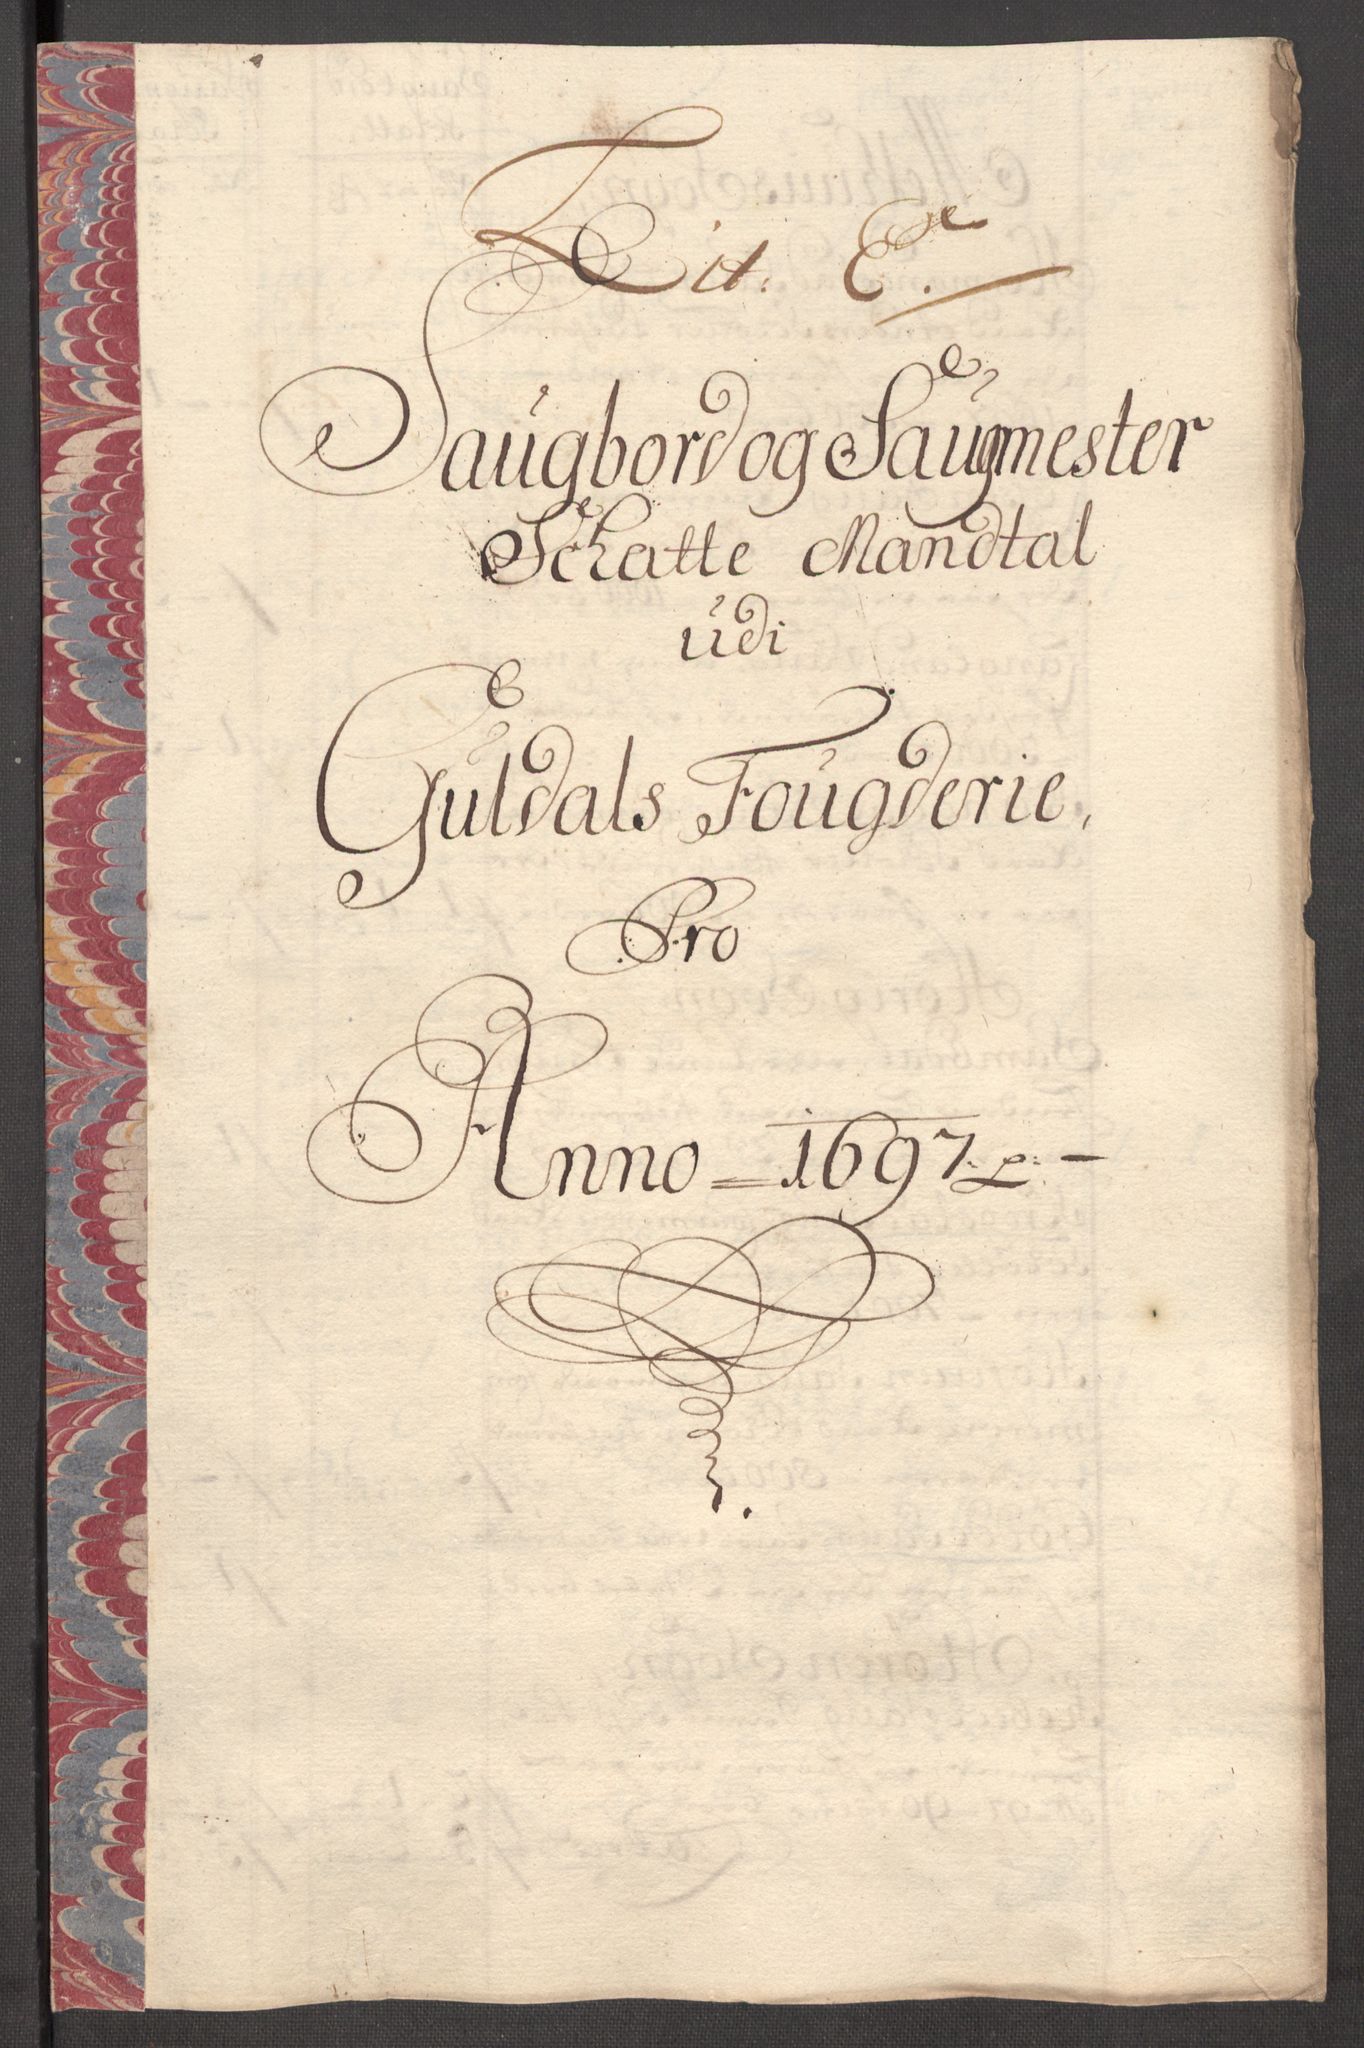 Lit. E.
Saugbord og Saugmester
Schatte Mandtal
udi
Guldals Fougderie,
Pro
Anno = 1697